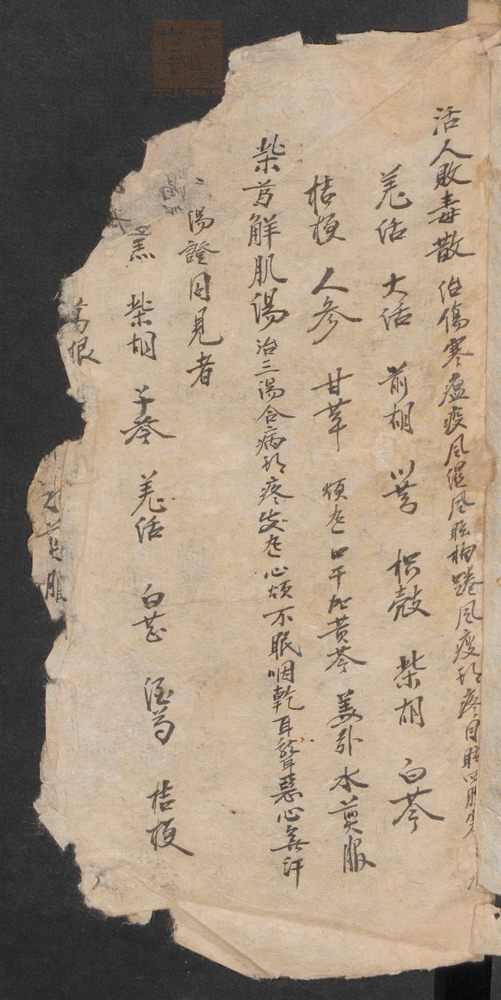 活人敗毒散 治傷寒瘟疫風濕風眩拘踡風痰頭疼目眩
羗活 大活 前胡 川芎 枳殼 柴胡 白苓
桔梗 人參 甘草 煩老口干加黃芩 姜引水煎服
柴葛解肌湯 治三陽合病頭疼發老心煩不眠咽乾耳聾惡心無汗
陽證同見者
柴胡 子芩 羗活 白芷 酒芍 桔梗
葛根